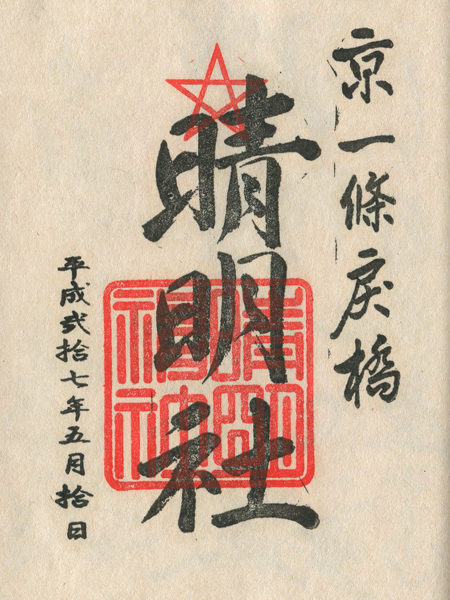 京一條戻橋
晴明社
晴明神社
平成弐拾七年五月拾日